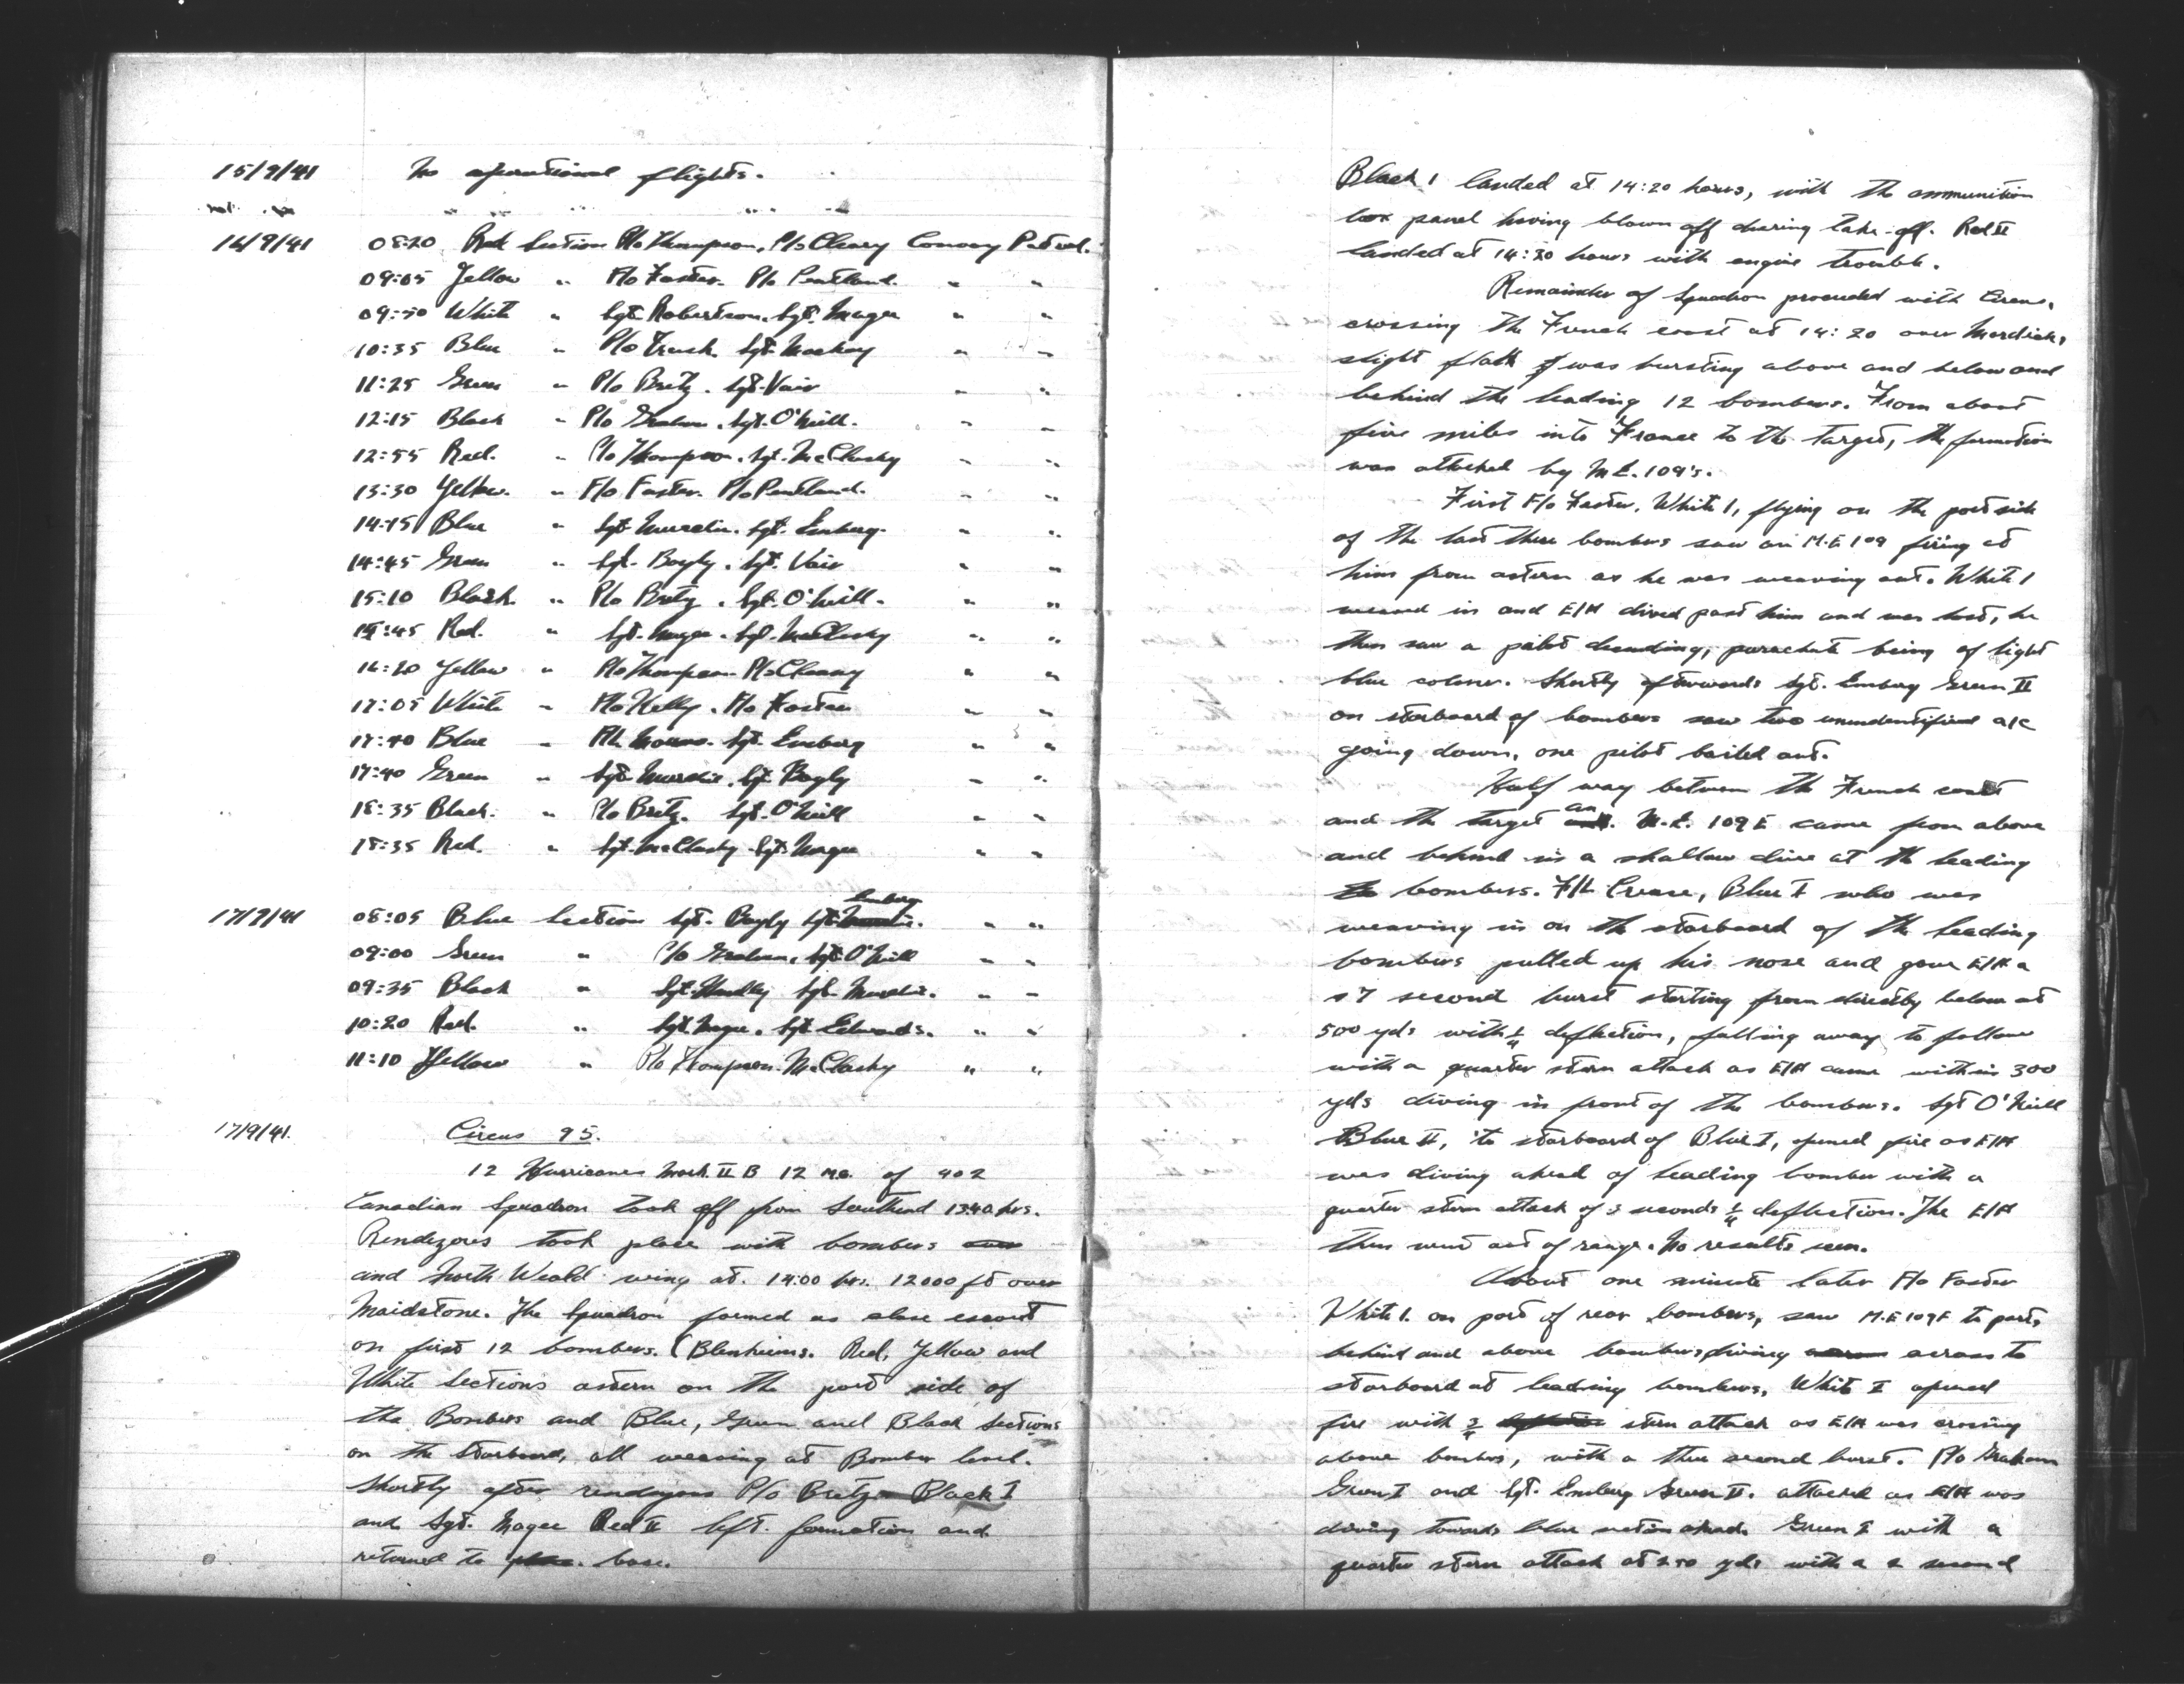 15/9/41 No operational flights.
16/9/41 08:20 Red Section P/o Thompson. P/o Cleary Convoy Patrol.
09:05 Yellow " F/o Foster. P/o Pentland. " "
09:50 White " Sgt. Robertson. Sgt. Magee " "
10:35 Blue " P/o Trask. Sgt. Mackay " "
11:25 Green " P/o Bretz. Sgt. Vair " "
12:15 Black " P/o Graham. Sgt. O'Neill. " "
12:55 Red. " P/o Thompson. Sgt. McClusky " "
13:30 Yellow. " F/o Foster. P/o Pentland. " "
14:15 Blue " Sgt. Murchie. Sgt. Emberg. " "
14:45 Green " Sgt. Bayly. Sgt. Vair " "
15:10 Black. " P/o Bretz. Sgt. O'Neill. " "
15:45 Red. " Sgt. Magee. Sgt. McClusky " "
16:20 Yellow " P/o Thompson P/o Cleary " "
17:05 White " P/o Kelly. F/o Foster " "
17:40 Blue " F/L Sgt. Emberg " "
17:40 Green " Sgt. Murchie. Sgt. Bayly " "
18:35 Black. " P/o Bretz. Sgt. O'Neill " "
18:35 Red. " Sgt. McClusky Sgt. Magee " "
17/9/41 08:05 Blue Section Sgt. Bayly Sgt. Emberg " "
09:00 Green " P/o Graham. Sgt O'Neill " "
09:35 Black " Sgt. Sgt. Murchie. " "
10:20 Red. " Sgt. Magee. Sgt. Edwards. " "
11:10 Yellow " P/o Thompson. McClusky " "
17/9/41. Circus 95.
12 Hurricanes Mark. II B 12 M.G. of 402
Canadian Squadron took off from Southend 13:40 hrs.
Rendezvous took place with bombers
and North Weald wing at. 14:00 hrs. 12000 ft over
Maidstone. The Squadron formed as close escort
on first 12 bombers. (Blenheims. Red, Yellow and
White Sections astern on the port side of
the Bombers and Blue, Green and Black Sections
on the starboard, all weaving at Bomber level.
Shortly after rendezvous P/o Bretz - Black I
and Sgt. Magee Red II left. formation and
returned to base.
Black 1 landed at 14:20 hours, with the ammunition
box panel having blown off during take-off. Red II
landed at 14:20 hours with engine trouble.
Remainder of Squadron proceeded with Circus,
crossing the French coast at 14:20 over Mardick,
slight flak was bursting above and below and
behind the leading 12 bombers. From about
five miles into France to the target, the formation
was attacked by M.E. 109's.
First F/o Foster, White 1, flying on the port side
of the last three bombers saw an M.E 109 firing at
him from astern as he was weaving out. White 1
weaved in and E/A dived past him and was lost, he
then saw a pilot descending, parachute being of light
blue colour. Shortly afterwards Sgt. Emberg Green II
on starboard of bombers saw two unidentified a/c
going down, one pilot bailed out.
Half way between the French coast
and the target an M.E. 109 E came from above
and behind in a shallow dive at the leading
bombers. F/L Crease, Blue I who was
weaving in on the starboard of the leading
bombers pulled up his nose and gave E/A a
7 second burst starting from directly below at
500 yds with deflection, falling away to follow
with a quarter stern attack as E/A came within 300
yds diving in front of the bombers. Sgt O'Neill
Blue II, to starboard of Blue I, opened fire as E/A
was diving ahead of leading bomber with a
quarter stern attack of 3 seconds deflection. The E/A
then went out of range. No results seen.
About one minute later F/o Foster
White 1. on port of rear bombers, saw M.E 109E to port,
behind and above bombers diving across to
starboard at leading bombers, White I opened
fire with stern attack as E/A was crossing
above bombers, with a three second burst. P/o Graham
Green I and Sgt. Emberg Green II. attacked as E/A was
diving towards blue section ahead. Green I with a
quarter stern attack at 250 yds with a 2 second